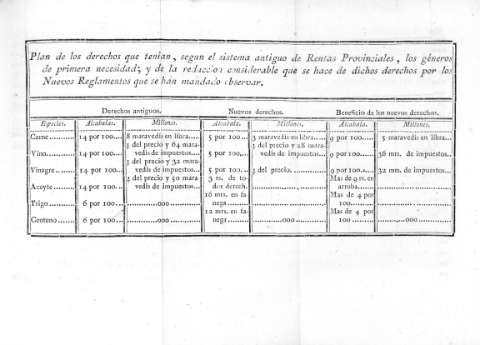 Plan de los derechos que tenian, segun el sistema antiguo de Rentas Provinciales, los géneros
de primera necesidad; y de la reduccion considerable que se hace de dichos derechos por los
Nuevos Reglamentos que se han mandado observar.
Derechos antiguos. Nuevos derechos. Beneficio de los nuevos derechos.
Especies. Alcabalas. Millones. Alcabala. Millones. Alcabala. Millones.
Carne 14 por 100 8 maravedis en libra 5 por 100 3 maravedis en libra 9 por 100 5 maravedis en libra
del precio y 64 mara- del precio y 28 mara-
Vino 14 por 100 vedis de impuestos 5 por 100 vedis de impuestos 9 por 100 36 mrs. de impuestos
del precio y 32 mara-
Vinagre 14 por 100 vedis de impuestos 5 por 100 del precio 9 por 100 32 mrs. de impuestos
del precio y 50 mara- 3 m. de to- Mas de 9 m. en
Aceyte 14 por 100 vedis de impuestos dos derech. arroba
16 mrs. en fa- Mas de 4 por
Trigo 6 por 100 000 nega 000 100 000
12 mrs. en fa- Mas de 4 por
Centeno 6 por 100 000 nega 000 100 000